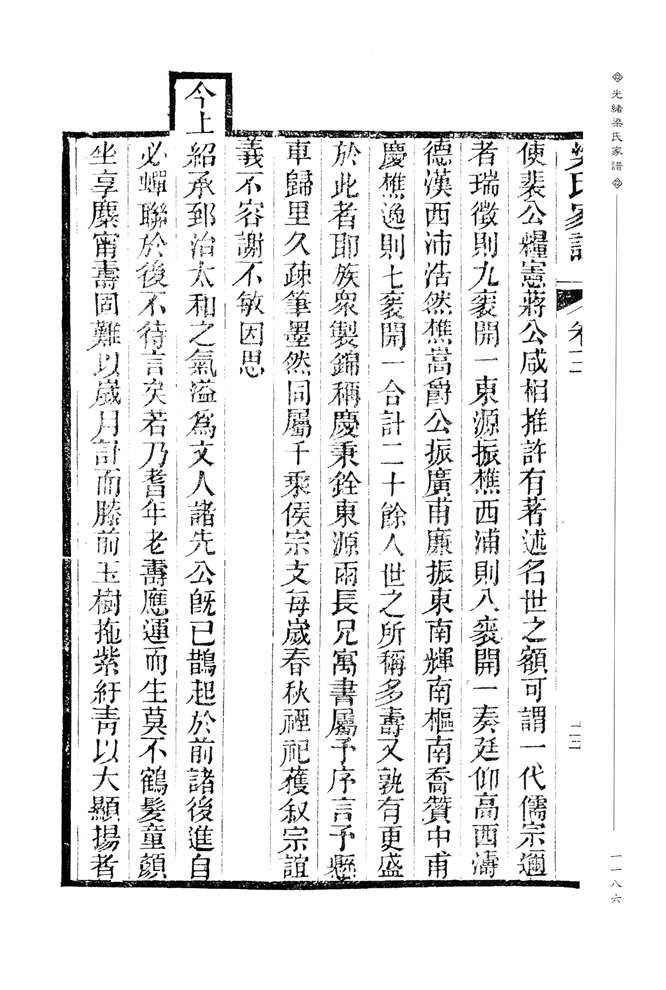 光緒梁氏家譜
一一八六
梁氏家譜 卷二 十二
使裴公糧憲蔣公咸相推許有著述名世之額可謂一代儒宗邇
者瑞徵則九袠開一東源振樵西浦則八袠開一奏廷仰高西濤
德漢西沛浩然樵嵩爵公振廣甫廉振東南輝南樞南喬贊中甫
慶樵逸則七袠開一合計二十餘人世之所稱多壽又孰有更盛
於此者耶族衆製錦稱慶秉銓東源兩長兄寓書屬予序言予懸
車歸里久疎筆墨然同屬千乘侯宗支每歲春秋禋祀獲叙宗誼
義不容謝不敏因思
今上紹承郅治太和之氣溢為文人諸先公既已鵲起於前諸後進自
必蟬聯於後不待言矣若乃耆年老壽應運而生莫不鶴髮童顏
坐享麋甯壽固難以歲月計而膝前玉樹拖紫紆靑以大顯揚者